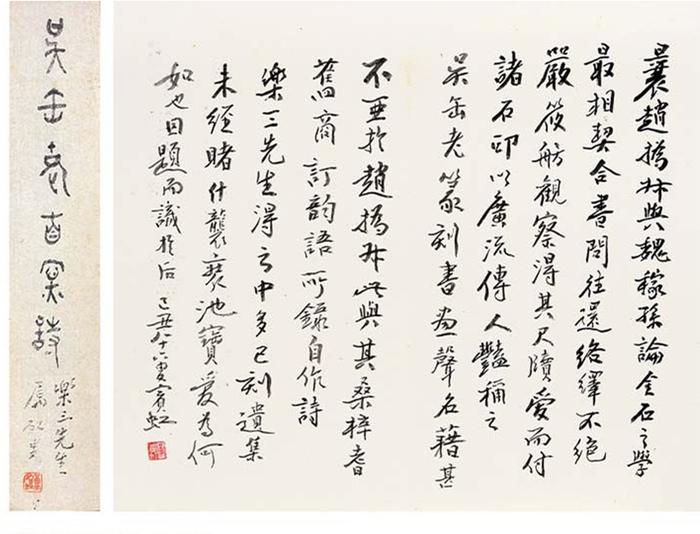 曩趙撝叔與魏稼孫論金石之學
最相契合書問往還絡繹不絕
嚴筱舫觀察得其尺牘愛而付
諸石印以廣流傳人豔稱之
吳缶老篆刻書畫聲名藉甚
不亞於趙撝叔此與其桑梓耆
舊商訂韵語所錄自作詩
樂三先生得之中多已刻遺集
未經賭什襲池寶愛為何
如也因題而識於后 己丑八十六叟賓虹
吳缶老自詩
樂三先生
屬